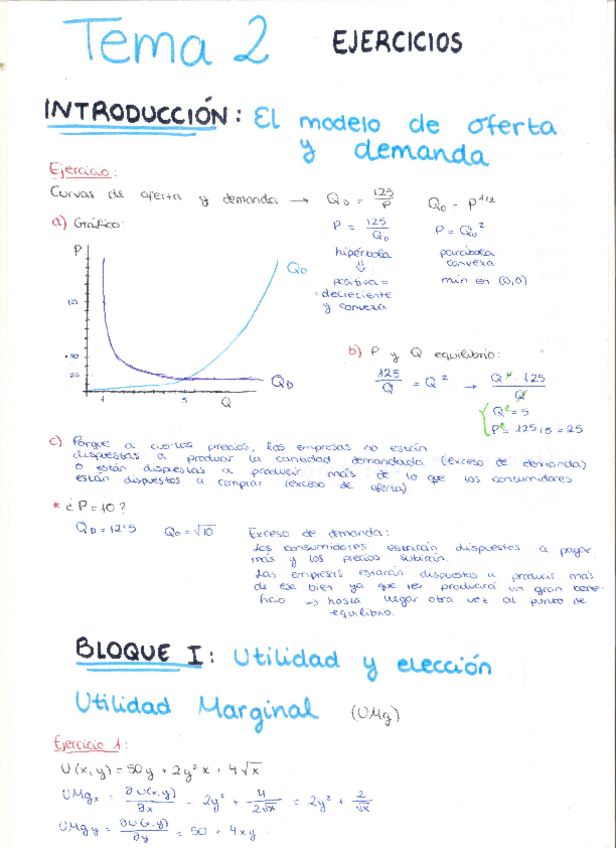 Tema 2 EJERCICIOS
INTRODUCCIÓN: El modelo de oferta
y demanda
Ejercicio:
Curvas de oferta y demanda → Q_D = 125/P   Q_O = P^1/2
a) Gráfico:   P = 125/Q_D   P = Q_O^2
hipérbola   parábola
⇓   convexa
positiva =   mín en (0,0)
= decreciente
y convexa
P
Q_O
125
50
25
Q_D
1   5
Q
b) P y Q equilibrio:
125/Q = Q^2 →
Q^e = 5
P^e = 125/5 = 25
c) Porque a ciertos precios, las empresas no están
dispuestas a producir la cantidad demandada (exceso de demanda)
o están dispuestas a producir más de lo que los consumidores
están dispuestos a comprar (exceso de oferta)
* ¿P=10?
Q_D = 12'5   Q_O = √10   Exceso de demanda:
Los consumidores estarán dispuestos a pagar
más y los precios subirán.
Las empresas estarán dispuestas a producir más
de ese bien ya que les producirá un gran bene-
ficio → hasta llegar otra vez al punto de
equilibrio.
BLOQUE I: Utilidad y elección
Utilidad Marginal (UMg)
Ejercicio 1:
U(x,y) = 50y + 2y^2x + 4√x
UMg_x = ∂U(x,y)/∂x = 2y^2 + 4/2√x = 2y^2 + 2/√x
UMg_y = ∂U(x,y)/∂y = 50 + 4xy